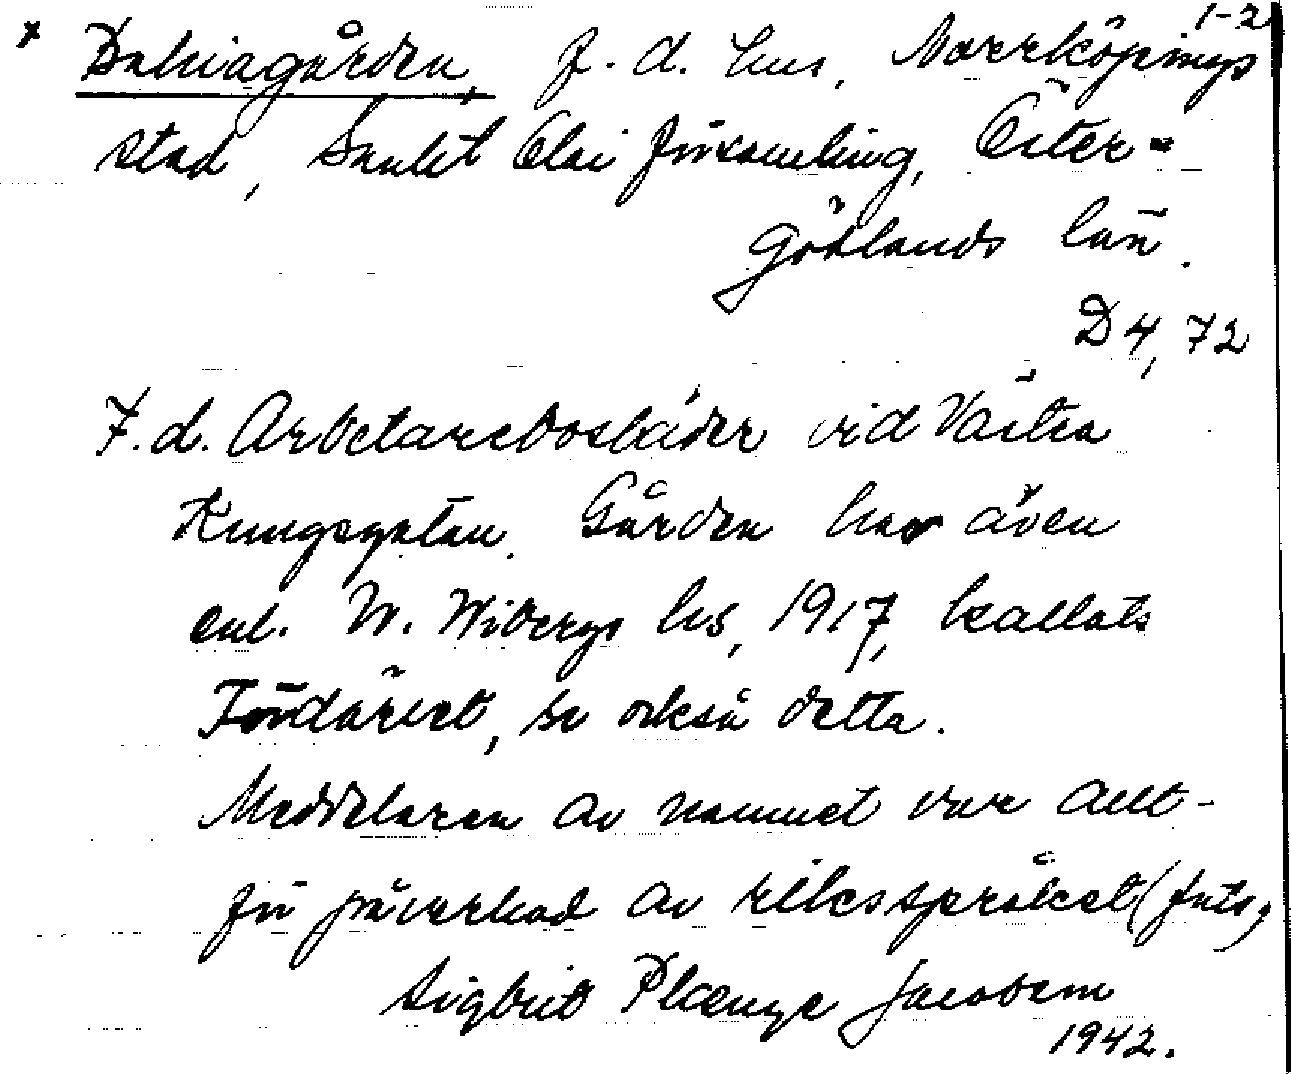 1-2
* Dahliagården, f. d. hus, Norrköpings
stad, Sankt Olai församling, Öster=
götlands län.
D 4, 72
F. d. Arbetarebostäder vid Västra
Kungsgatan. Gården har även
enl. W. Wibergs hs, 1917, kallats
se också detta.
Meddelaren av namnet var allt-
för påverkad av riksspråket (forts,
Sigbrit Plænge Jacobson
1942.